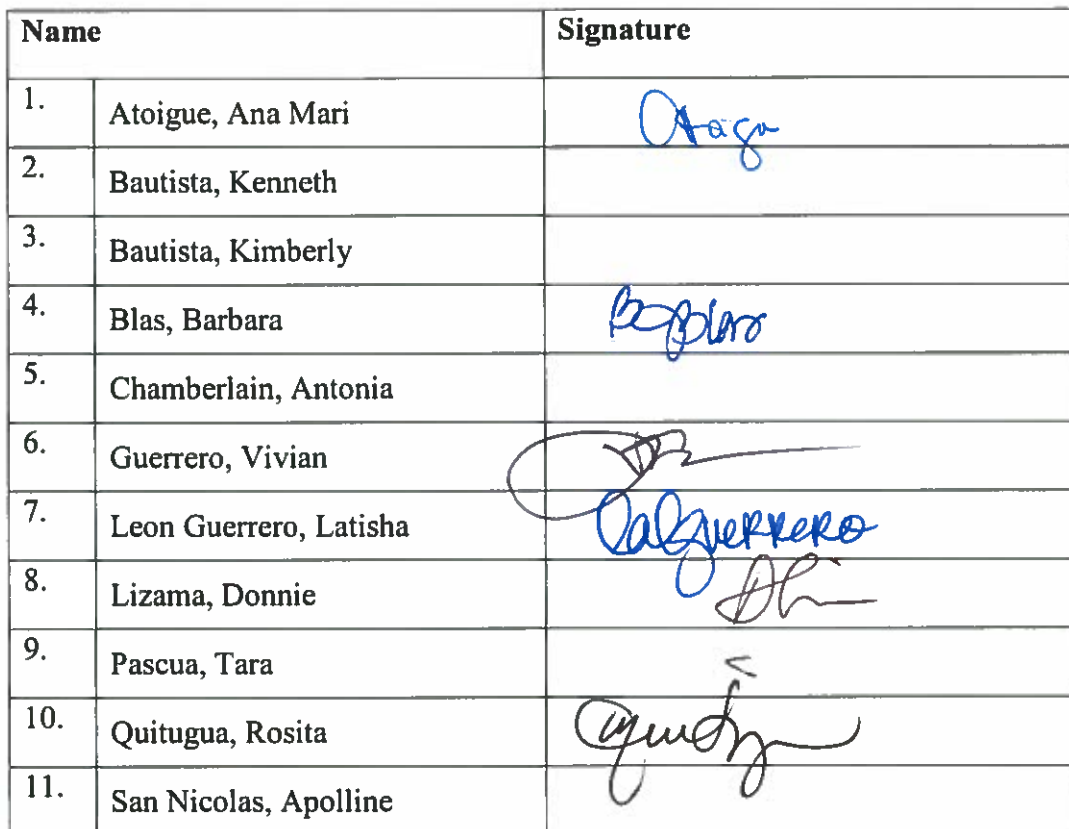 Name Signature
1. Atoigue, Ana Mari
2. Bautista, Kenneth
3. Bautista, Kimberly
4. Blas, Barbara
5. Chamberlain, Antonia
6. Guerrero, Vivian
7. Leon Guerrero, Latisha
8. Lizama, Donnie
9. Pascua, Tara
10. Quitugua, Rosita
11. San Nicolas, Apolline